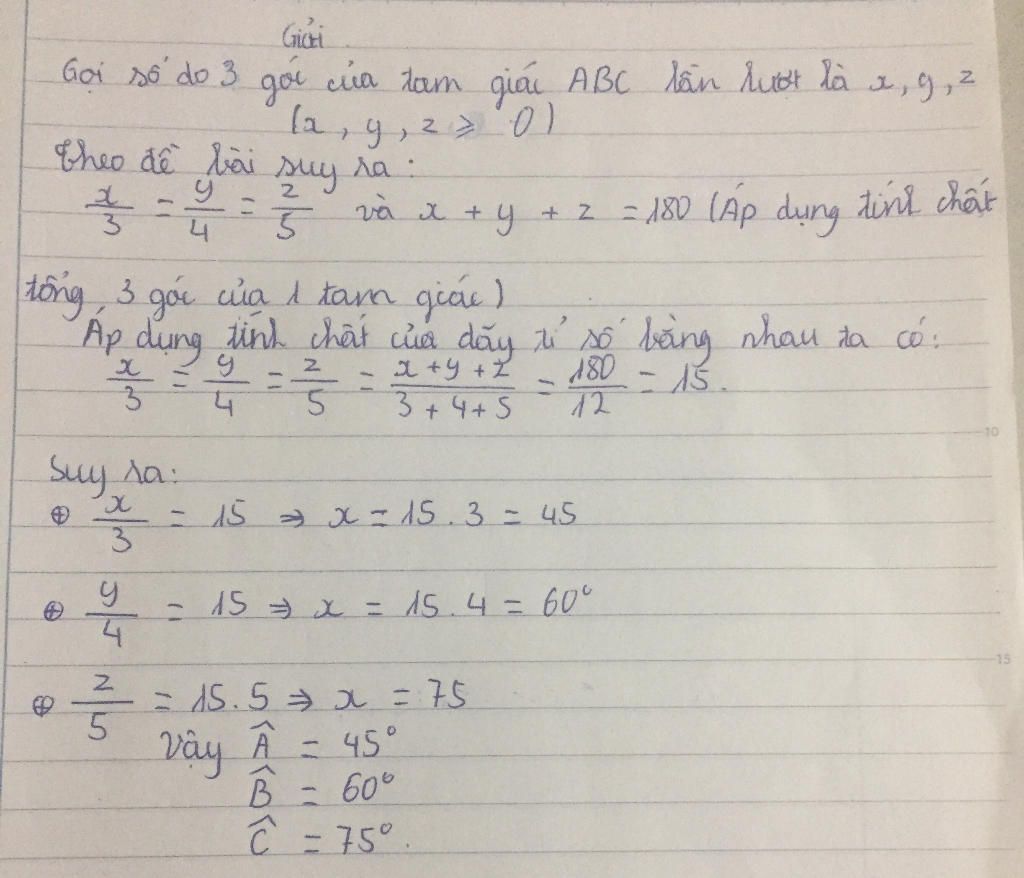 Giải
Gọi số do 3 góc của tam giác ABC lần lượt là x, y, z
(x, y, z ⩾ 0)
Theo đề bài suy ra:
x/3 = y/4 = z/5 và x + y + z = 180 (Áp dụng tính chất
tổng 3 góc của 1 tam giác)
Áp dụng tính chất của dãy tỉ số bằng nhau ta có:
x/3 = y/4 = z/5 = x+y+z/3+4+5 = 180/12 = 15.
Suy ra:
⊕ x/3 = 15 ⇒ x = 15.3 = 45
⊕ y/4 = 15 ⇒ x = 15.4 = 60°
⊕ z/5 = 15.5 ⇒ x = 75
Vậy Â = 45°
B̂ = 60°
Ĉ = 75°.
10
15